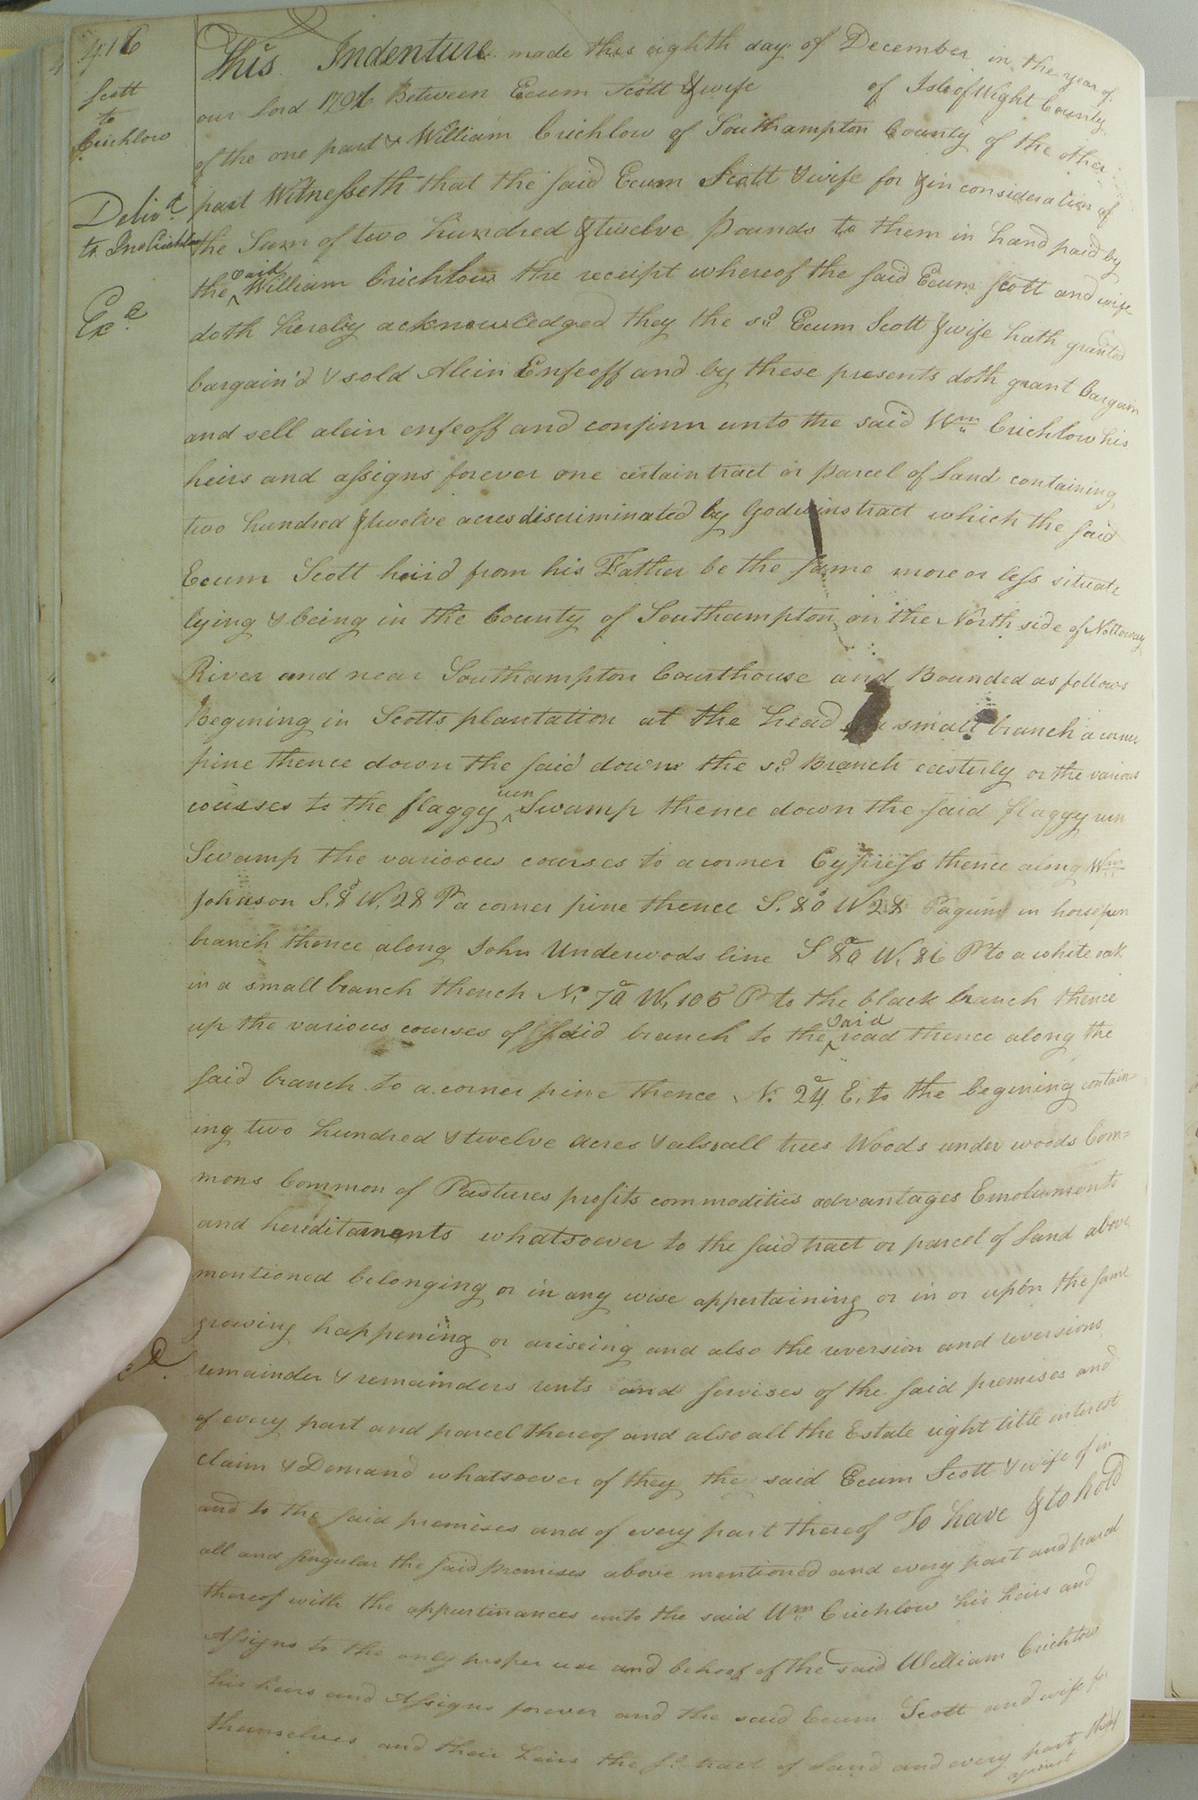 416
Scott
to
Crichlow
Deliv.d
to Jno Crichlow
Ex.d
This Indenture made this eighth day of December in the year of
our lord 1796 Between Exum Scott & wife of Isle of Wight County
of the one part & William Crichlow of Southampton County of the other
part Witnesseth that the said Exum Scott & wife for & in consideration of
the Sum of two hundred & twelve Pounds to them in hand paid by
the said William Crichlow the receipt whereof the said Exum Scott and wife
doth hereby acknowledged they the sd. Exum Scott & wife hath granted
bargain'd & sold Alein Enfeoff and by these presents doth grant Bargain
and sell alein enfeoff and confirm unto the said Wm Crichlow his
heirs and assigns forever one certain tract or parcel of Land containing
two hundred & twelve acres discriminated by Godwins tract which the said
Exum Scott heird from his Father be the same more or less situate
lying & being in the County of Southampton on the North side of Nottoway
River and near Southampton Courthouse and Bounded as follows
Begining in Scotts plantation at the head a small branch a corner
pine thence down the said down the sd. Branch easterly or the various
courses to the flaggy run Swamp thence down the said flaggy run
Swamp the various courses to a corner Cypress thence along Wm
Johnson S. 8 W. 28 P a corner pine thence S. 80 W 28 P a gum in horsepen
branch thence along John Underwoods line S 80 W. 86 P to a white oak
in a small branch thench N. 70 W. 106 P to the black branch thence
up the various courses of said branch to the said road thence along the
said branch to a corner pine thence N. 24 E. to the begining contain
ing two hundred & twelve acres & also all trees Woods under woods Com=
mons Common of Pastures profits commodities advantages Emoluments
and hereditaments whatsoever to the said tract or parcel of Land above
mentioned belonging or in any wise appertaining or in or upon the same
growing happening or ariseing and also the reversion and reversions
remainder & remainders rents and servises of the said premises and
of every part and parcel thereof and also all the Estate right title interest
claim & Demand whatsoever of they the said Exum Scott & wife of in
and to the said premises and of every part thereof To have & to hold
all and singular the said premises above mentioned and every part and parcel
thereof with the appurtinances unto the said Wm Crichlow his heirs and
Assigns to the only proper use and behoof of the said William Crichlow
his heirs and Assigns forever and the said Exum Scott and wife for
themselves and their heirs the sd. tract of Land and every part thof
against